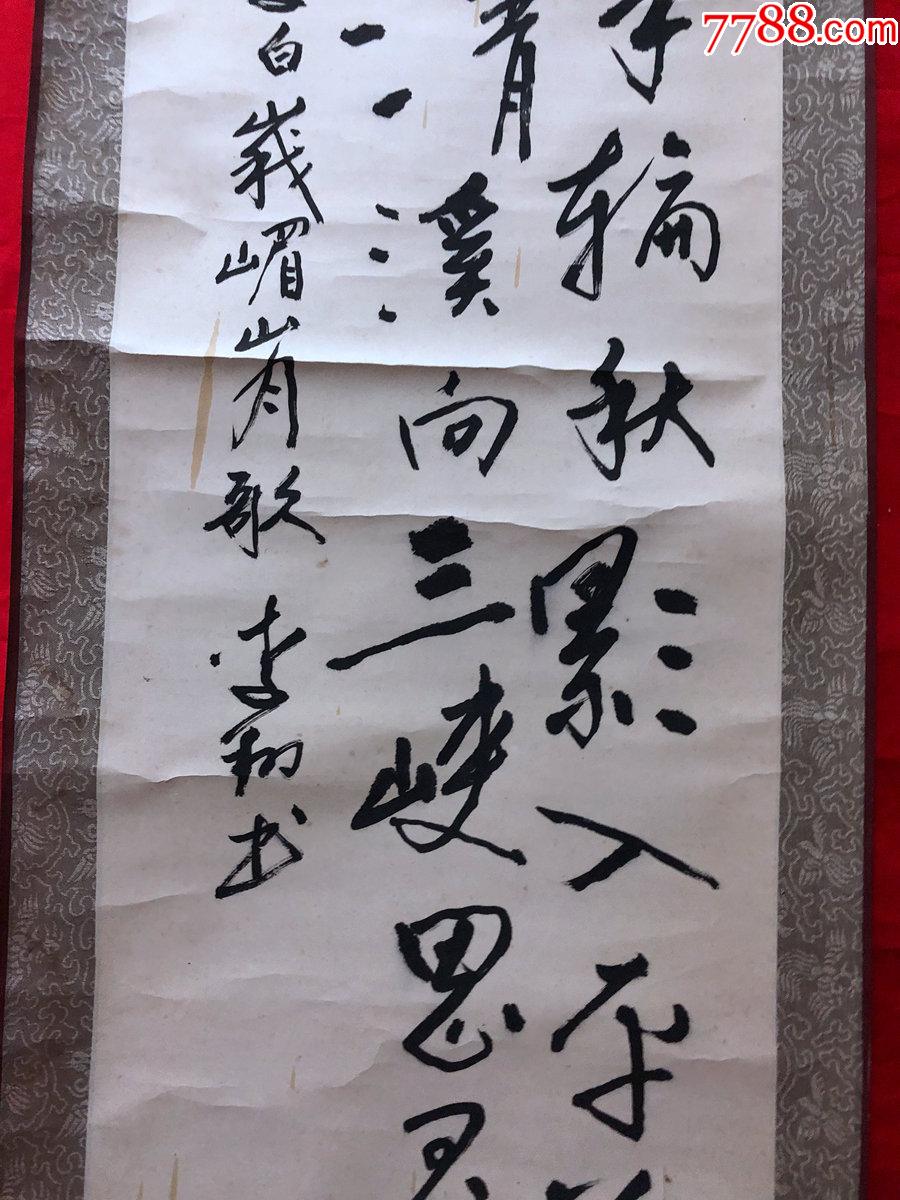 7788.com
半輪秋影入平
清溪向三峡思君
白峩嵋山月歌 李 书